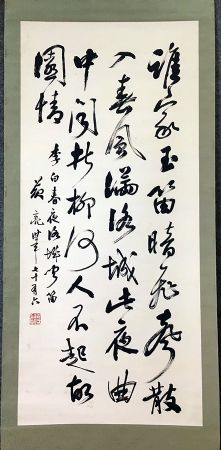 誰家玉笛暗飛聲散
入春風滿洛城此夜曲
中聞折柳何人不起故
園情
李白春夜洛城聞笛
七十